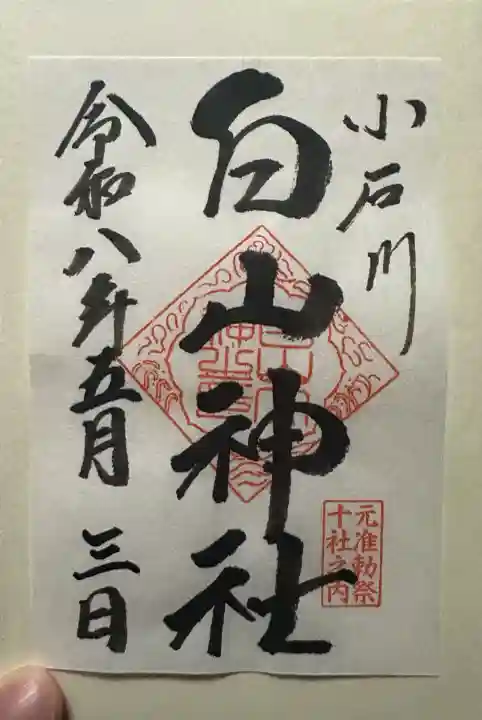 小石川
白山神社
元准勅祭
十社之内
令和八年五月三日